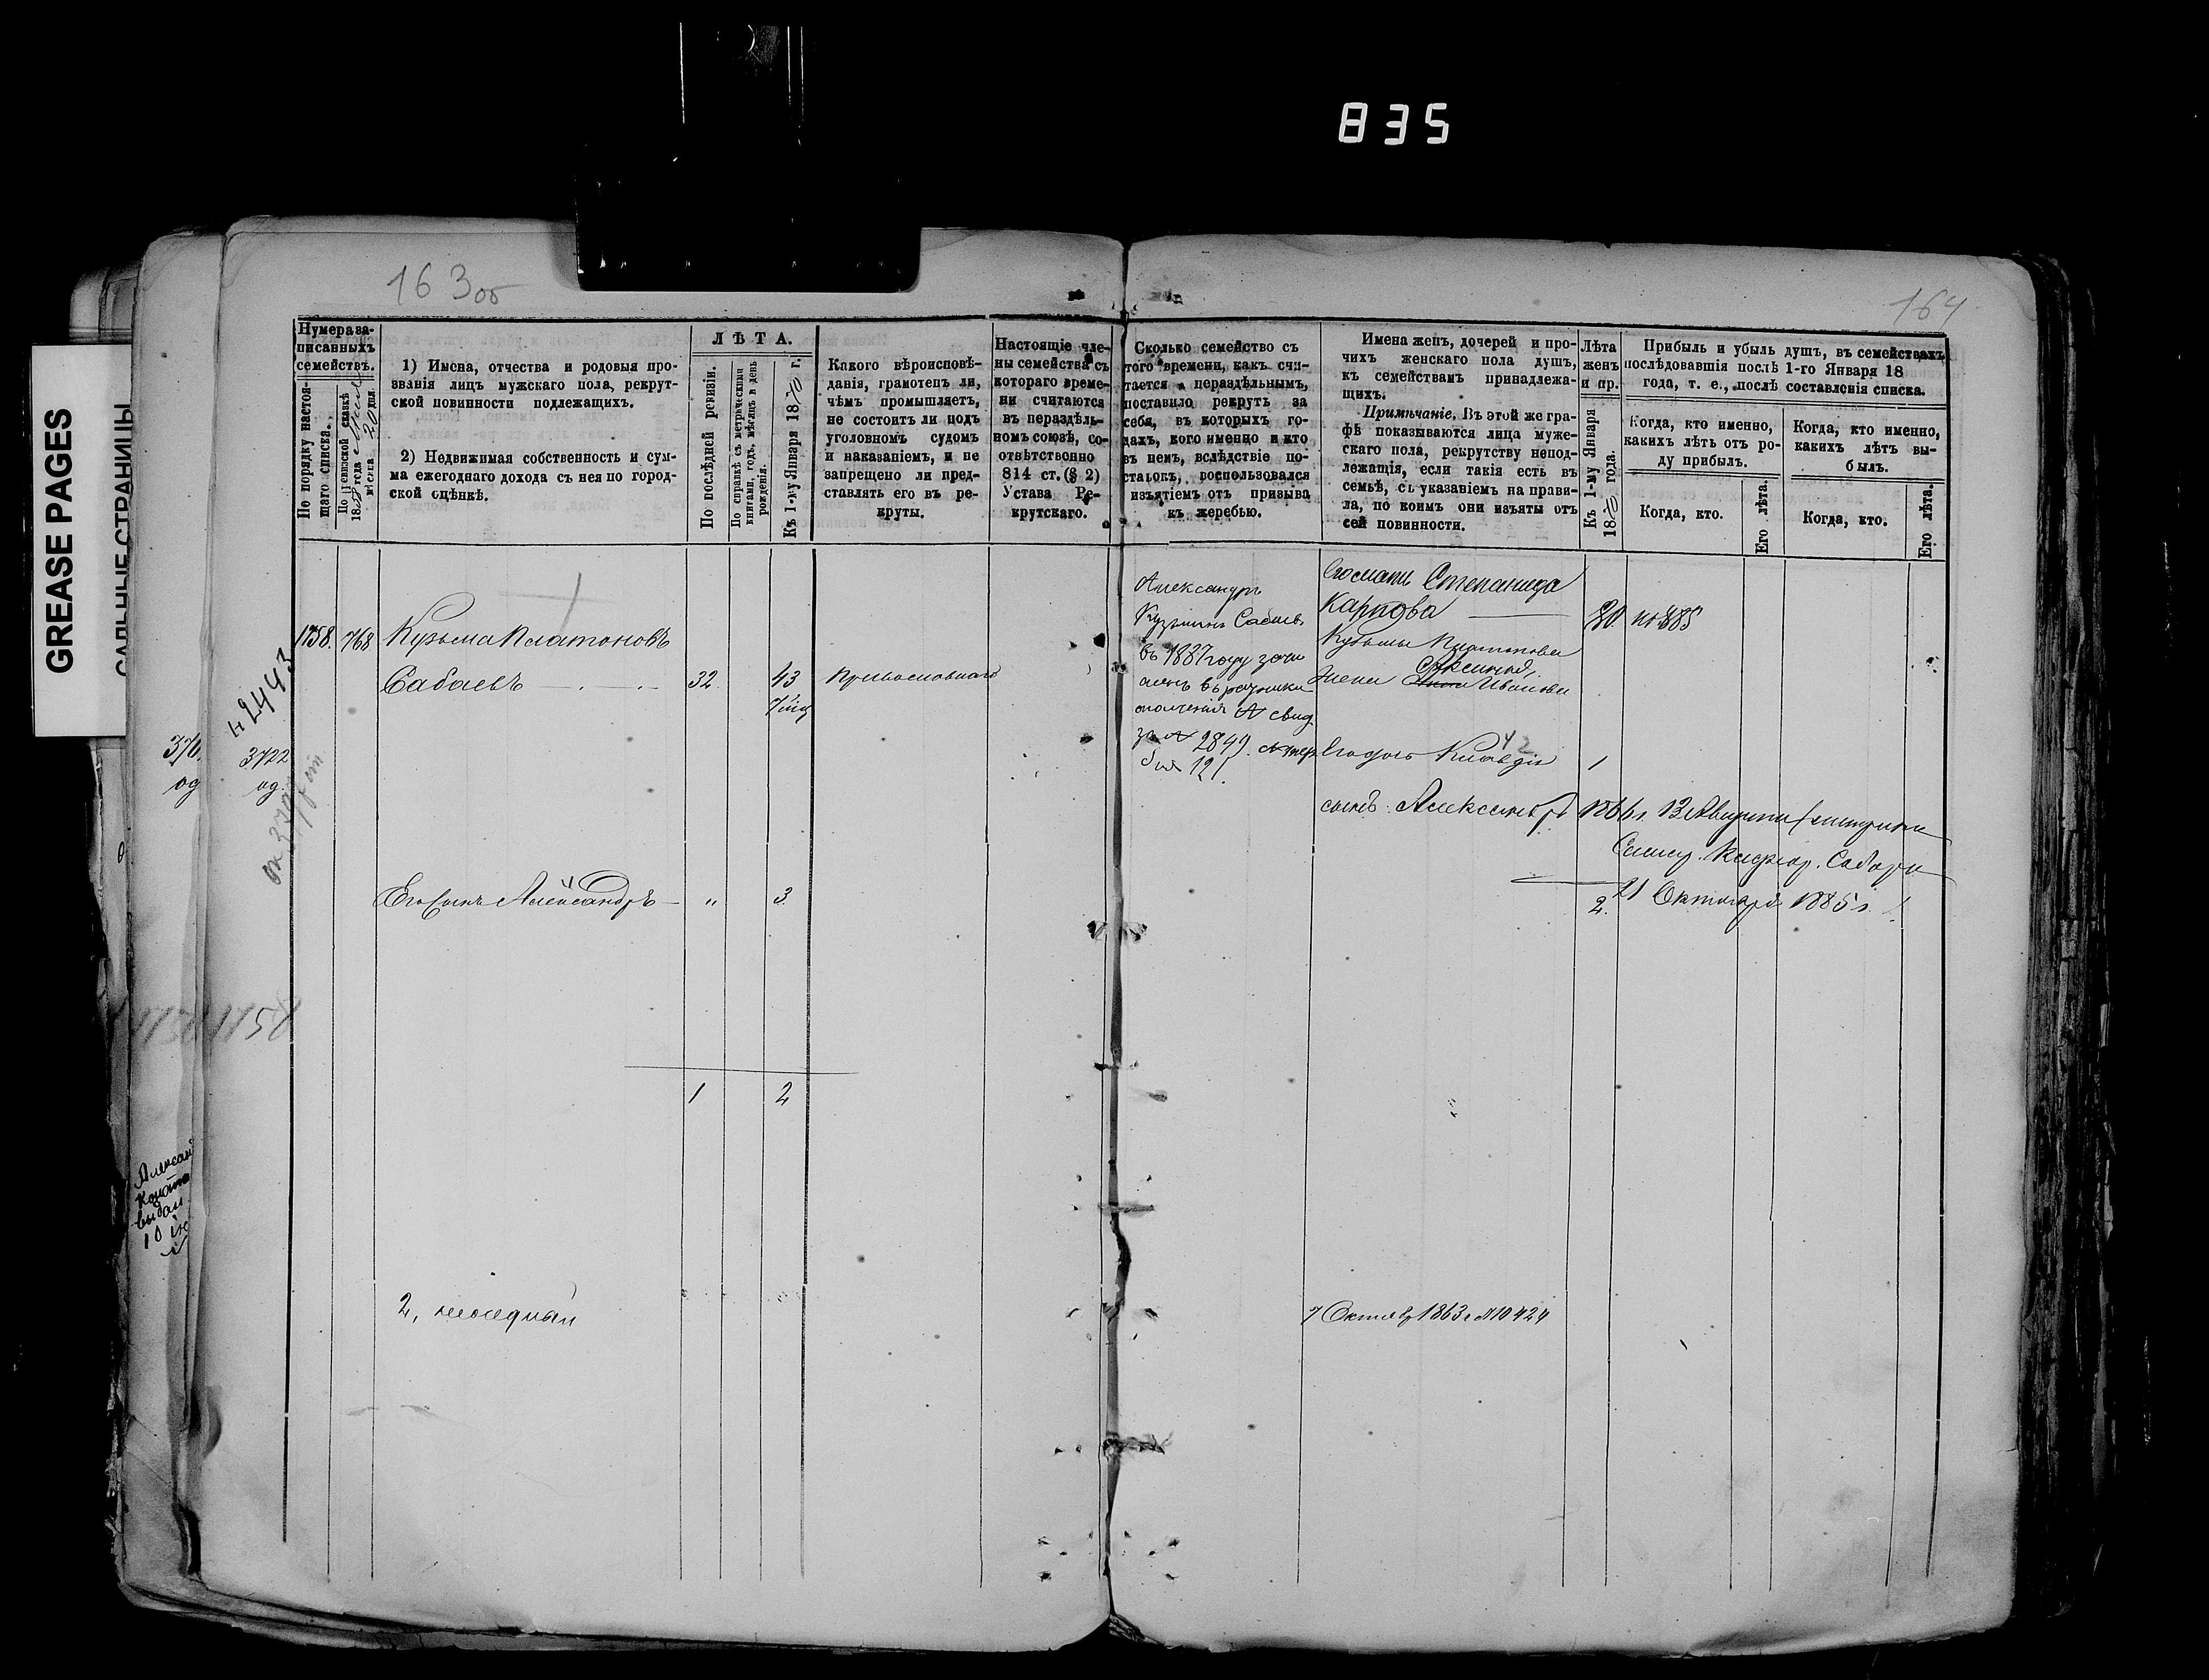 835
GREASE PAGES
САЛЬНЫЕ СТРАНИЦЫ
163об
164
Нумера за-
писанныхъ
семействъ.
По порядку настоя-
щаго списка.
По ревизской сказкѣ
18 года
мѣсяца 20 дня.
1) Имена, отчества и родовыя про-
званія лицъ мужскаго пола, рекрут-
ской повинности подлежащихъ.
2) Недвижимая собственность и сум-
ма ежегоднаго дохода съ нея по город-
ской оцѣнкѣ.
ЛѢТА.
По послѣдней ревизіи.
По справкѣ съ метрическими
книгами, годъ, мѣсяцъ и день
рожденія.
Къ 1-му Января 1870 г.
Какого вѣроисповѣ-
данія, грамотенъ ли,
чѣмъ промышляетъ,
не состоитъ ли подъ
уголовномъ судомъ
и наказаніемъ, и не
запрещено ли пред-
ставлять его въ ре-
круты.
Настоящіе чле-
ны семейства съ
котораго време-
ни считаются
въ нераздѣль-
номъ союзѣ, со-
отвѣтственно
814 ст. (§ 2)
Устава Ре-
крутскаго.
Сколько семейство съ
того времени, какъ счи-
тается нераздѣльнымъ,
поставило рекрутъ за
себя, въ которыхъ го-
дахъ, кого именно и кто
въ немъ, вслѣдствіе по-
ставокъ, воспользовался
изъятіемъ отъ призыва
къ жеребью.
Имена женъ, дочерей и про-
чихъ женскаго пола душъ,
къ семействамъ принадлежа-
щихъ.
Примѣчаніе. Въ этой же гра-
фѣ показываются лица муже-
скаго пола, рекрутству непод-
лежащія, если такія есть въ
семьѣ, съ указаніемъ на прави-
ла, по коимъ они изъяты отъ
сей повинности.
Лѣта
женъ
и пр.
Къ 1-му Января
1870 года.
Прибыль и убыль душъ, въ семействахъ
послѣдовавшія послѣ 1-го Января 18
года, т. е., послѣ составленія списка.
Когда, кто именно,
какихъ лѣтъ отъ ро-
ду прибылъ.
Когда, кто.
Его лѣта.
Когда, кто именно,
какихъ лѣтъ вы-
былъ.
Когда, кто.
Его лѣта.
1758. 768 Кузьма Платоновъ
Сабаевъ 32 43 Православнаго
Его сынъ Александръ " 3
1 2
2,
№ 2443
3722
од.
376
од
Александръ
Кузьминъ Сабаевъ
въ 1887 году зачи
сленъ въ ратники
ополченія свид.
за № 2849.
121.
Его мать Степанида
Карпова
Кузьмы Платонова
жена Аксинья
Иванова
Его дочь Клавдія 1
сынъ Александръ 1866 г. 13 Августа
21 Октября 1885 г.
2.
7 Октяб 1863 г № 10424